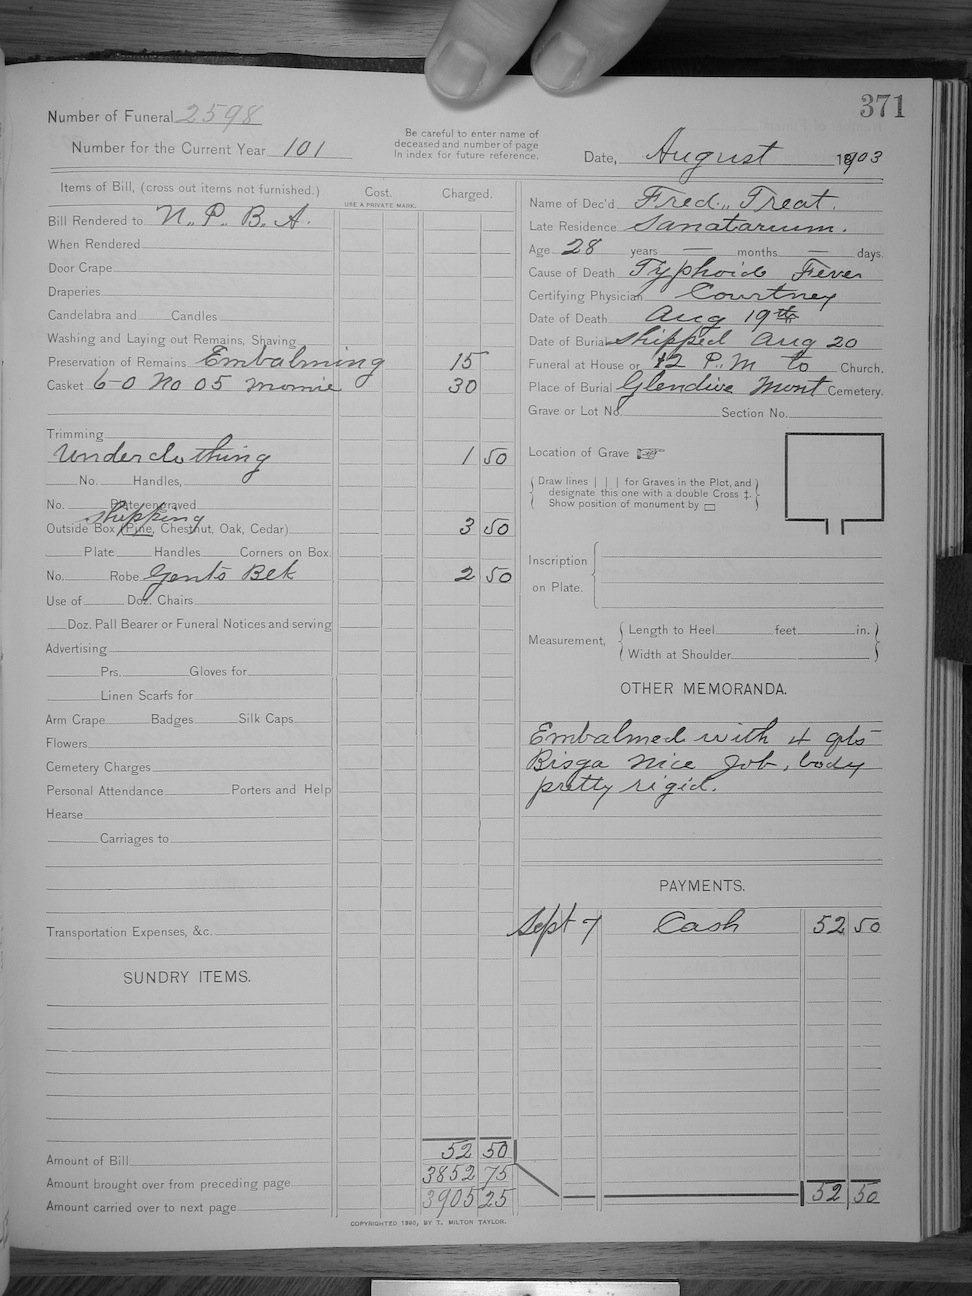 371
Number of Funeral 2598
Number for the Current Year 101
Be careful to enter name of
deceased and number of page
in index for future reference.
Date, August 1903
Items of Bill, (cross out items not furnished.)
Cost.
USE A PRIVATE MARK.
Charged.
Bill Rendered to N. P. B. A.
When Rendered
Door Crape
Draperies
Candelabra and Candles
Washing and Laying out Remains, Shaving
Preservation of Remains Embalming 15
Casket 6-0 No 05 Momie 30
Trimming
Underclothing 1 50
No. Handles,
No. Plate engraved
shipping
Outside Box (Pine, Chestnut, Oak, Cedar) 3 50
Plate Handles Corners on Box.
No. Robe Gents Blk 2 50
Use of Doz. Chairs
Doz. Pall Bearer or Funeral Notices and serving
Advertising
Prs. Gloves for
Linen Scarfs for
Arm Crape Badges Silk Caps
Flowers
Cemetery Charges
Personal Attendance Porters and Help
Hearse
Carriages to
Transportation Expenses, &c.
SUNDRY ITEMS.
Amount of Bill 52 50
Amount brought over from preceding page 3852 75
Amount carried over to next page 3905 25
Name of Dec'd Fred. Treat.
Late Residence Sanatarium.
Age 28 years — months — days.
Cause of Death Typhoid Fever
Certifying Physician Courtney
Date of Death Aug 19th
Date of Burial Shipped Aug 20
Funeral at House or 12 P. M to Church.
Place of Burial Glendive Mont Cemetery.
Grave or Lot No. Section No.
Location of Grave
Draw lines | | | for Graves in the Plot, and
designate this one with a double Cross ‡.
Show position of monument by
Inscription
on Plate.
Measurement,
Length to Heel feet in.
Width at Shoulder
OTHER MEMORANDA.
Embalmed with 4 qts
Bisga nice Job, body
pretty rigid.
PAYMENTS.
Sept 7 Cash 52 50
52 50
COPYRIGHTED 1890, BY T. MILTON TAYLOR.